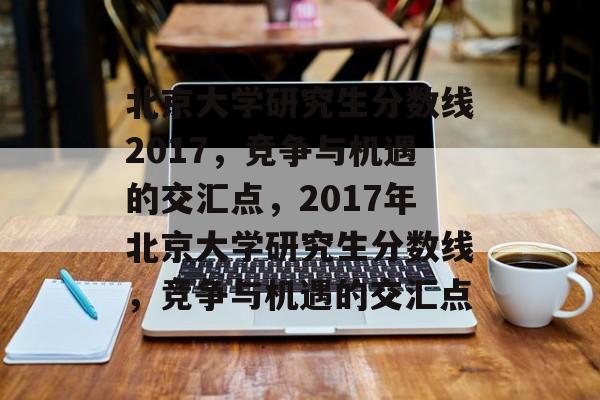 北京大学研究生分数线
2017，竞争与机遇
的交汇点，2017年
北京大学研究生分数线
，竞争与机遇的交汇点